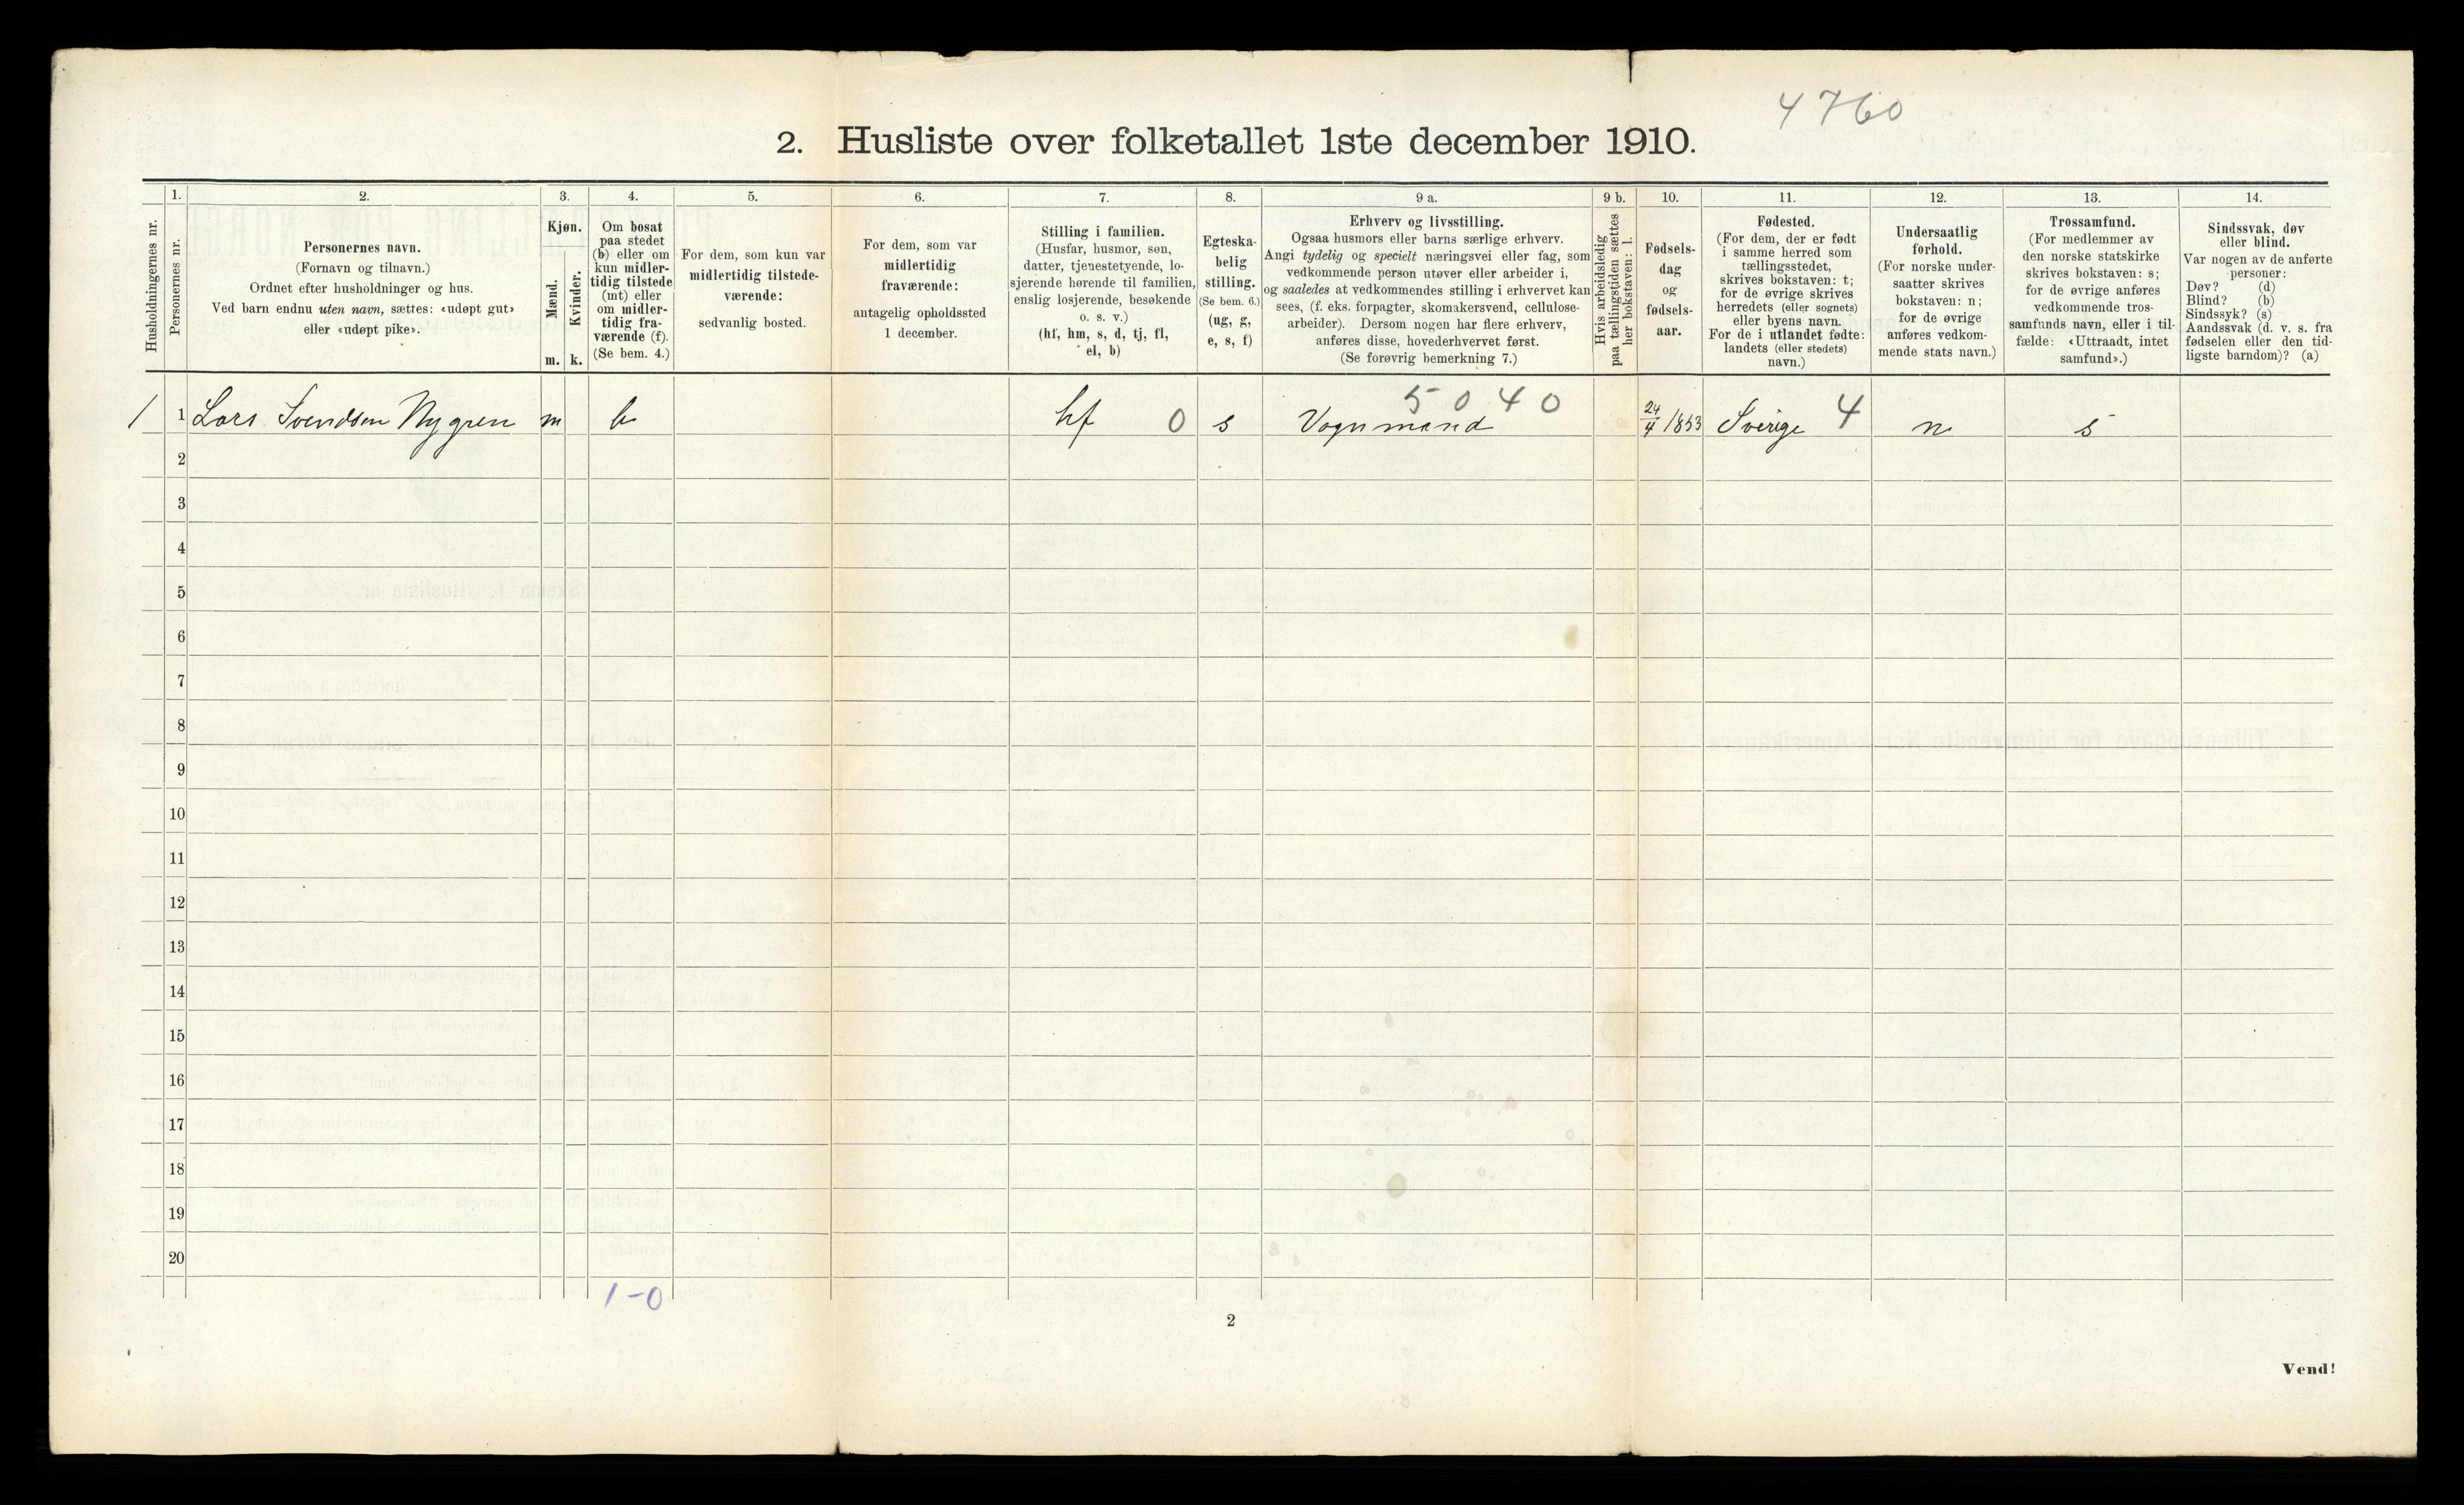 4760
2. Husliste over folketallet 1ste december 1910.
Husholdningernes nr.
1.
Personernes nr.
2.
Personernes navn.
(Fornavn og tilnavn.)
Ordnet efter husholdninger og hus.
Ved barn endnu uten navn, sættes: «udøpt gut»
eller «udøpt pike».
3.
Kjøn.
Mænd.
Kvinder.
m. k.
4.
Om bosat
paa stedet
(b) eller om
kun midler-
tidig tilstede
(mt) eller
om midler-
tidig fra-
værende (f).
(Se bem. 4.)
5.
For dem, som kun var
midlertidig tilstede-
værende:
sedvanlig bosted.
6.
For dem, som var
midlertidig
fraværende:
antagelig opholdssted
1 december.
7.
Stilling i familien.
(Husfar, husmor, søn,
datter, tjenestetyende, lo-
sjerende hørende til familien,
enslig losjerende, besøkende
o. s. v.)
(hf, hm, s, d, tj, fl,
el, b)
8.
Egteska-
belig
stilling.
(Se bem. 6.)
(ug, g,
e, s, f)
9 a.
Erhverv og livsstilling.
Ogsaa husmors eller barns særlige erhverv.
Angi tydelig og specielt næringsvei eller fag, som
vedkommende person utøver eller arbeider i,
og saaledes at vedkommendes stilling i erhvervet kan
sees, (f. eks. forpagter, skomakersvend, cellulose-
arbeider). Dersom nogen har flere erhverv,
anføres disse, hovederhvervet først.
(Se forøvrig bemerkning 7.)
9 b.
Hvis arbeidsledig
paa tællingstiden sættes
her bokstaven: l.
10.
Fødsels-
dag
og
fødsels-
aar.
11.
Fødested.
(For dem, der er født
i samme herred som
tællingsstedet,
skrives bokstaven: t;
for de øvrige skrives
herredets (eller sognets)
eller byens navn.
For de i utlandet fødte:
landets (eller stedets)
navn.)
12.
Undersaatlig
forhold.
(For norske under-
saatter skrives
bokstaven: n;
for de øvrige
anføres vedkom-
mende stats navn.)
13.
Trossamfund.
(For medlemmer av
den norske statskirke
skrives bokstaven: s;
for de øvrige anføres
vedkommende tros-
samfunds navn, eller i til-
fælde: «Uttraadt, intet
samfund».)
14.
Sindssvak, døv
eller blind.
Var nogen av de anførte
personer:
Døv? (d)
Blind? (b)
Sindssyk? (s)
Aandssvak (d. v. s. fra
fødselen eller den tid-
ligste barndom)? (a)
5040
1 1 Lars Svendsen Nygren m b hf 0 s Vognmand 24/4 1853 Sverige 4 n s
2
3
4
5
6
7
8
9
10
11
12
13
14
15
16
17
18
19
20
1-0
2
Vend!